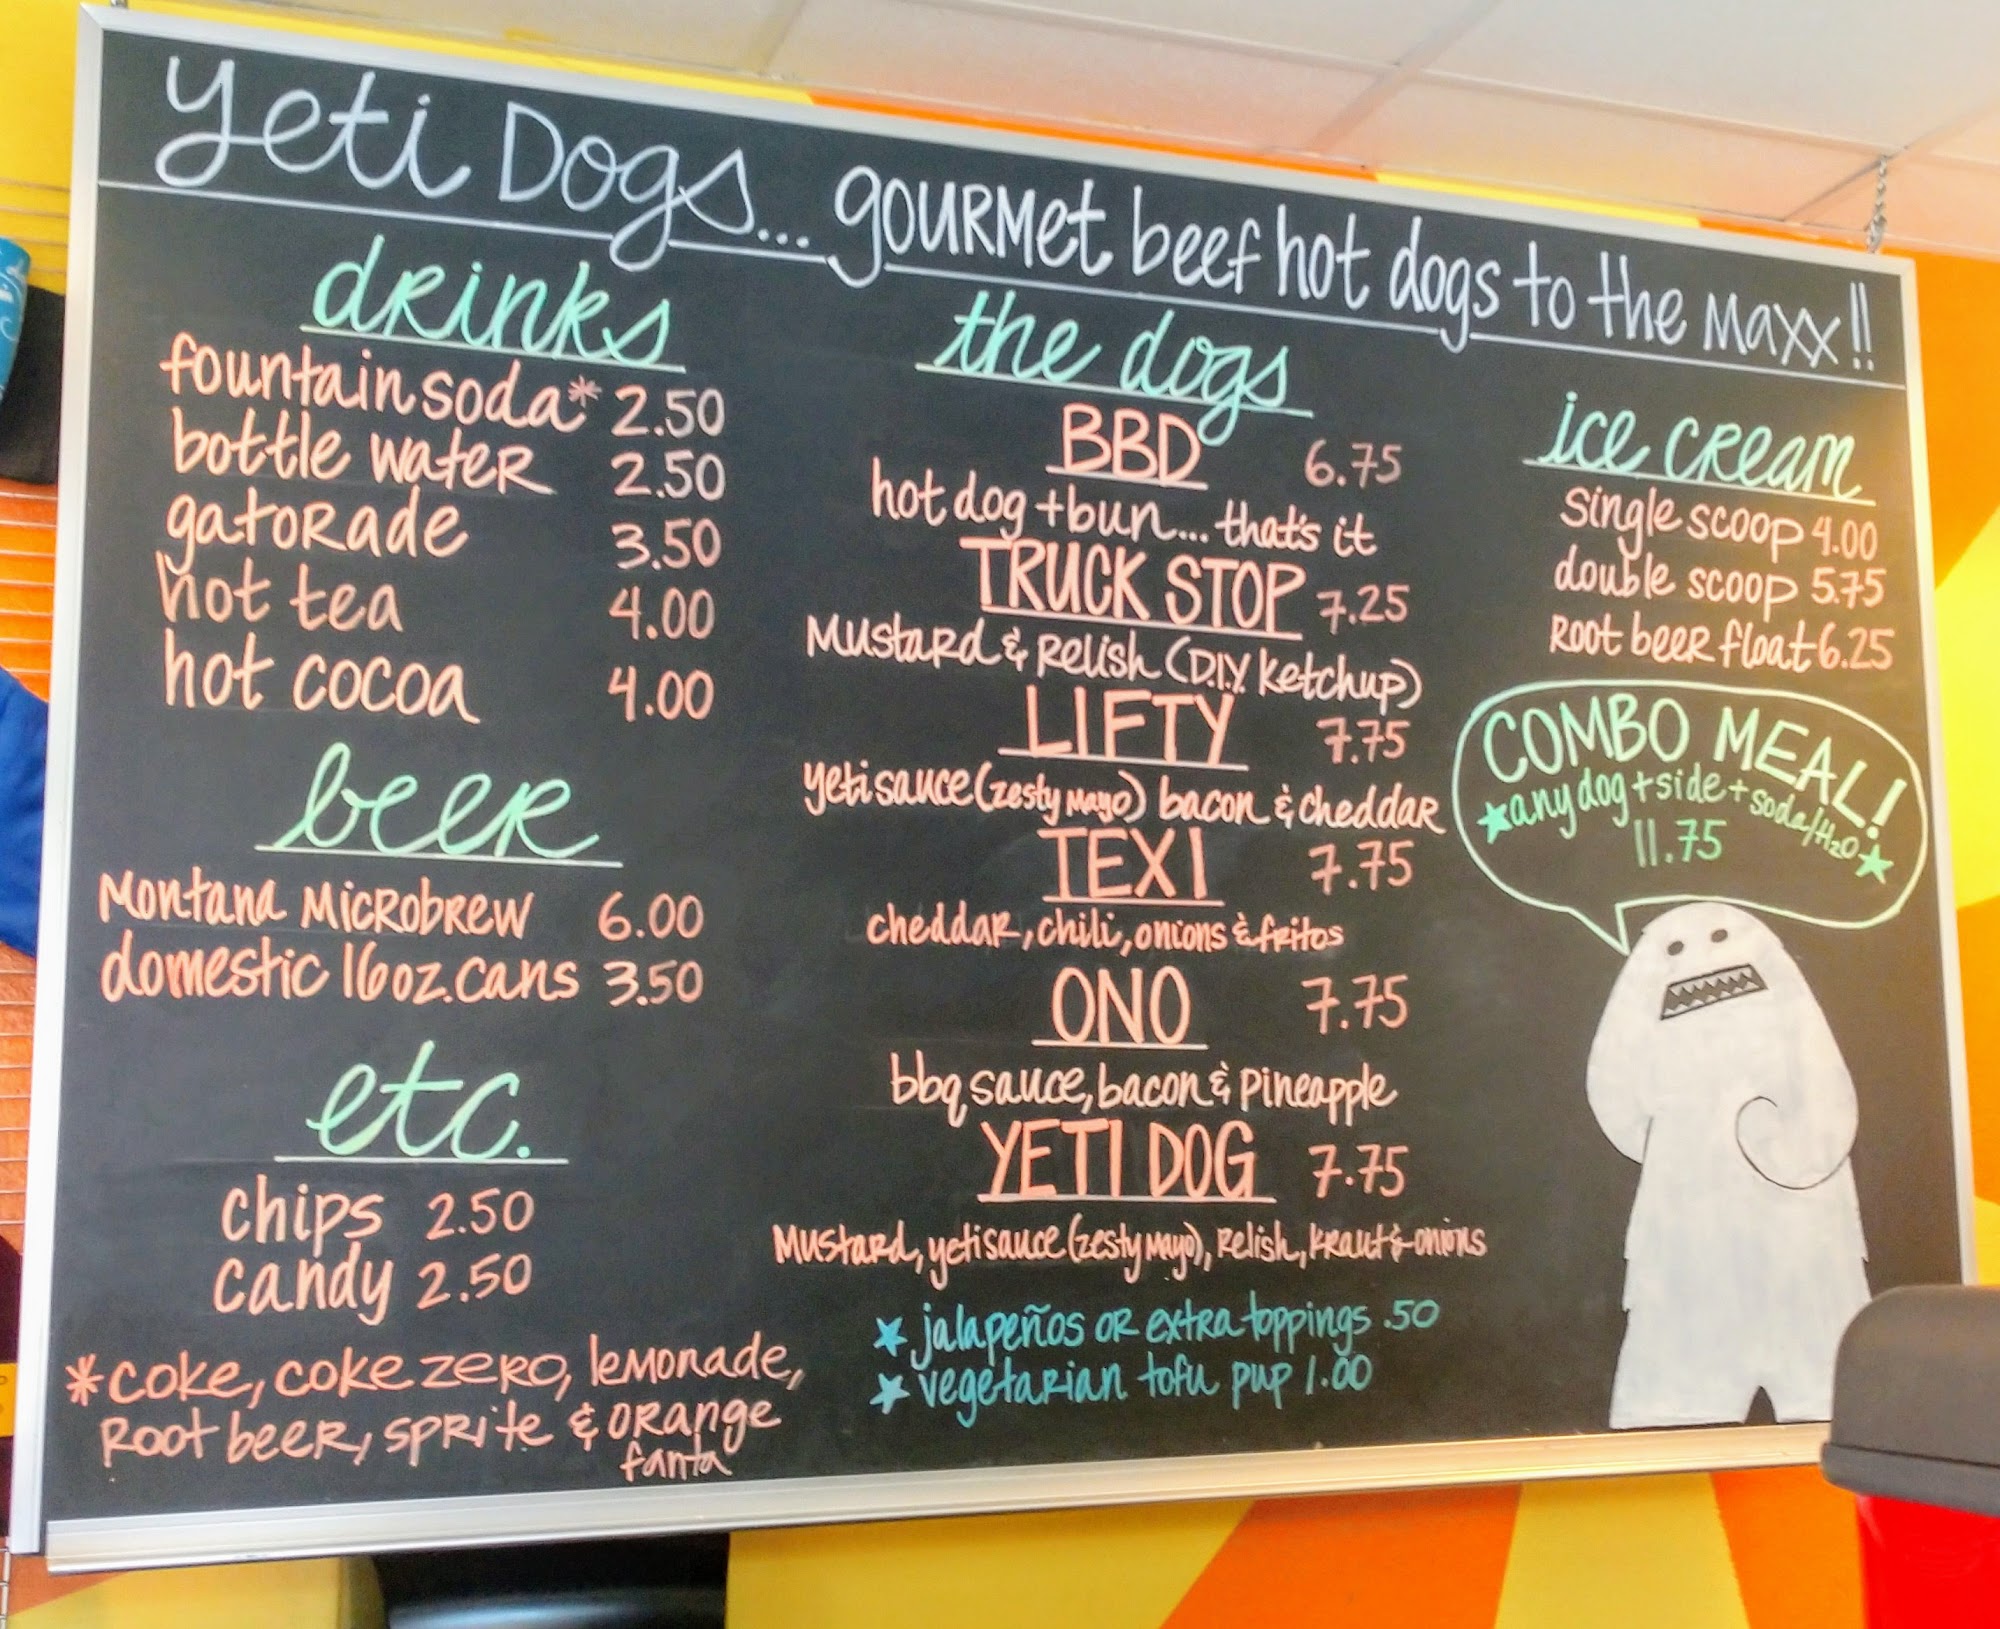 Yeti Dogs... gourmet beef hot dogs to the maxx!!
drinks
fountain soda* 2.50
bottle water 2.50
gatorade 3.50
hot tea 4.00
hot cocoa 4.00
beer
Montana Microbrew 6.00
domestic 16oz. cans 3.50
etc.
chips 2.50
candy 2.50
*coke, coke zero, lemonade,
root beer, sprite & orange
fanta
the dogs
BBD 6.75
hot dog + bun... that's it
TRUCK STOP 7.25
Mustard & relish (D.I.Y. ketchup)
LIFTY 7.75
yeti sauce (zesty mayo) bacon & cheddar
TEXI 7.75
cheddar, chili, onions & fritos
ONO 7.75
bbq sauce, bacon & pineapple
YETI DOG 7.75
Mustard, yeti sauce (zesty mayo), relish, kraut & onions
★ jalapeños or extra toppings .50
★ vegetarian tofu pup 1.00
ice cream
single scoop 4.00
double scoop 5.75
root beer float 6.25
COMBO MEAL!
★ any dog + side + soda/H₂O ★
11.75